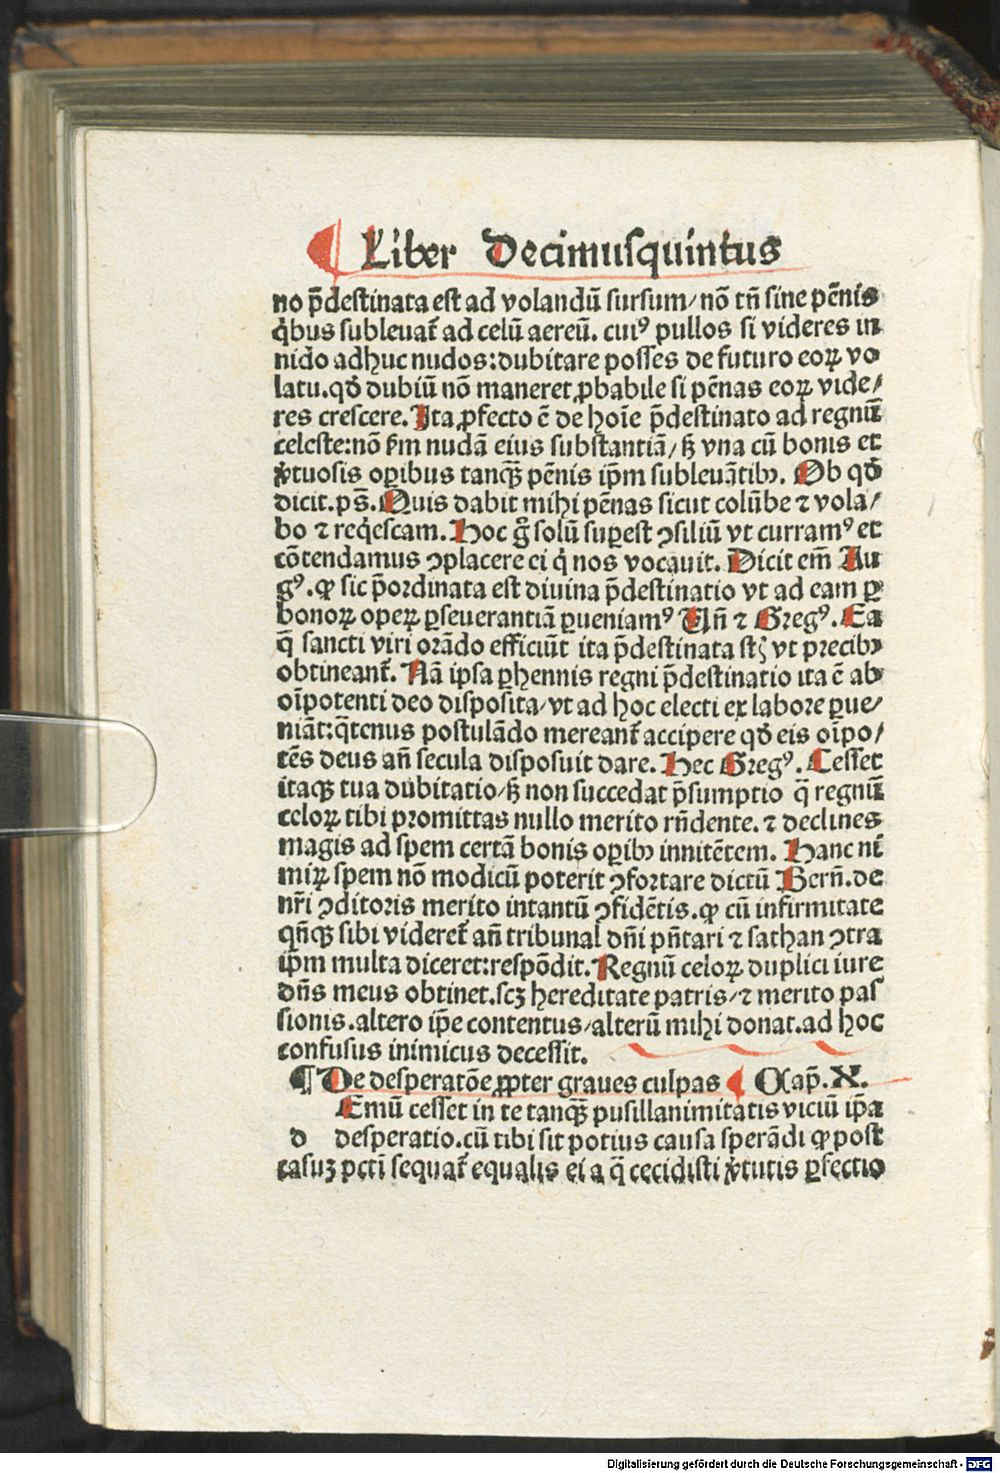 Liber Decimusquintus
no p̄destinata est ad volandū sursum/nō tñ sine pēnis
q̇bus subleuat̄ ad celū aereū. cuiꝰ pullos si videres in
nido adhuc nudos:dubitare posses de futuro eoꝝ vo
latu.qđ dubiū nō maneret ꝓbabile si pēnas eoꝝ vide/
res crescere. Ita ꝓfecto ē de hoīe p̄destinato ad regnū
celeste:nō ẜm nudā eius substantiā/ꝫ vna cū bonis et
v̇tuosis oꝑibus tanqꝫ pēnis ip̄m subleuātibꝰ. Ob qđ
dicit.ps̄. Quis dabit mihi pēnas sicut colūbe ⁊ vola/
bo ⁊ req̇escam. Hoc g̊ solū suꝑest ꝯsiliū vt curramꝰ et
cōtendamus ꝯplacere ei q̇ nos vocauit. Dicit em̄ Au
gꝰ. ꝙ sic p̄ordinata est diuina p̄destinatio vt ad eam ꝑ
bonoꝝ opeꝝ ꝑseuerantiā ꝑueniamꝰ Uñ ⁊ Gregꝰ. Ea
q̄ sancti viri orādo efficiūt ita p̄destinata st̄ vt precibꝰ
obtineant̄. Nā ipsa ꝑhennis regni p̄destinatio ita ē ab
oīpotenti deo disposita/vt ad hoc electi ex labore ꝑue/
niāt:q̄tenus postulādo mereant̄ accipere qđ eis oīpo/
tēs deus añ secula disposuit dare. Hec Gregꝰ. Cesset
itaqꝫ tua dubitatio/ꝫ non succedat p̄sumptio q̄ regnū
celoꝝ tibi promittas nullo merito rñdente. ⁊ declines
magis ad spem certā bonis oꝑibꝰ innitētem. Hanc ni
miꝝ spem nō modicū poterit ꝯfortare dictū Berñ. de
nr̄i ꝯditoris merito intantū ꝯfidētis. ꝙ cū infirmitate
qñqꝫ sibi videret̄ añ tribunal dñi pñtari ⁊ sathan ꝯtra
ip̄m multa diceret:respōdit. Regnū celoꝝ duplici iure
dñs meus obtinet.scꝫ hereditate patris/⁊ merito pas
sionis.altero ip̄e contentus/alterū mihi donat.ad hoc
confusus inimicus decessit.
¶ De desperatōe ꝓpter graues culpas ¶ Cap̄. X.
Emū cesset in te tanqꝫ pusillanimitatis viciū ip̄a
d desperatio.cū tibi sit potius causa sperādi ꝙ post
casuꝫ pctī sequat̄ equalis ei a q̄ cecidisti v̇tutis ꝑfectio
Digitalisierung gefördert durch die Deutsche Forschungsgemeinschaft - DFG